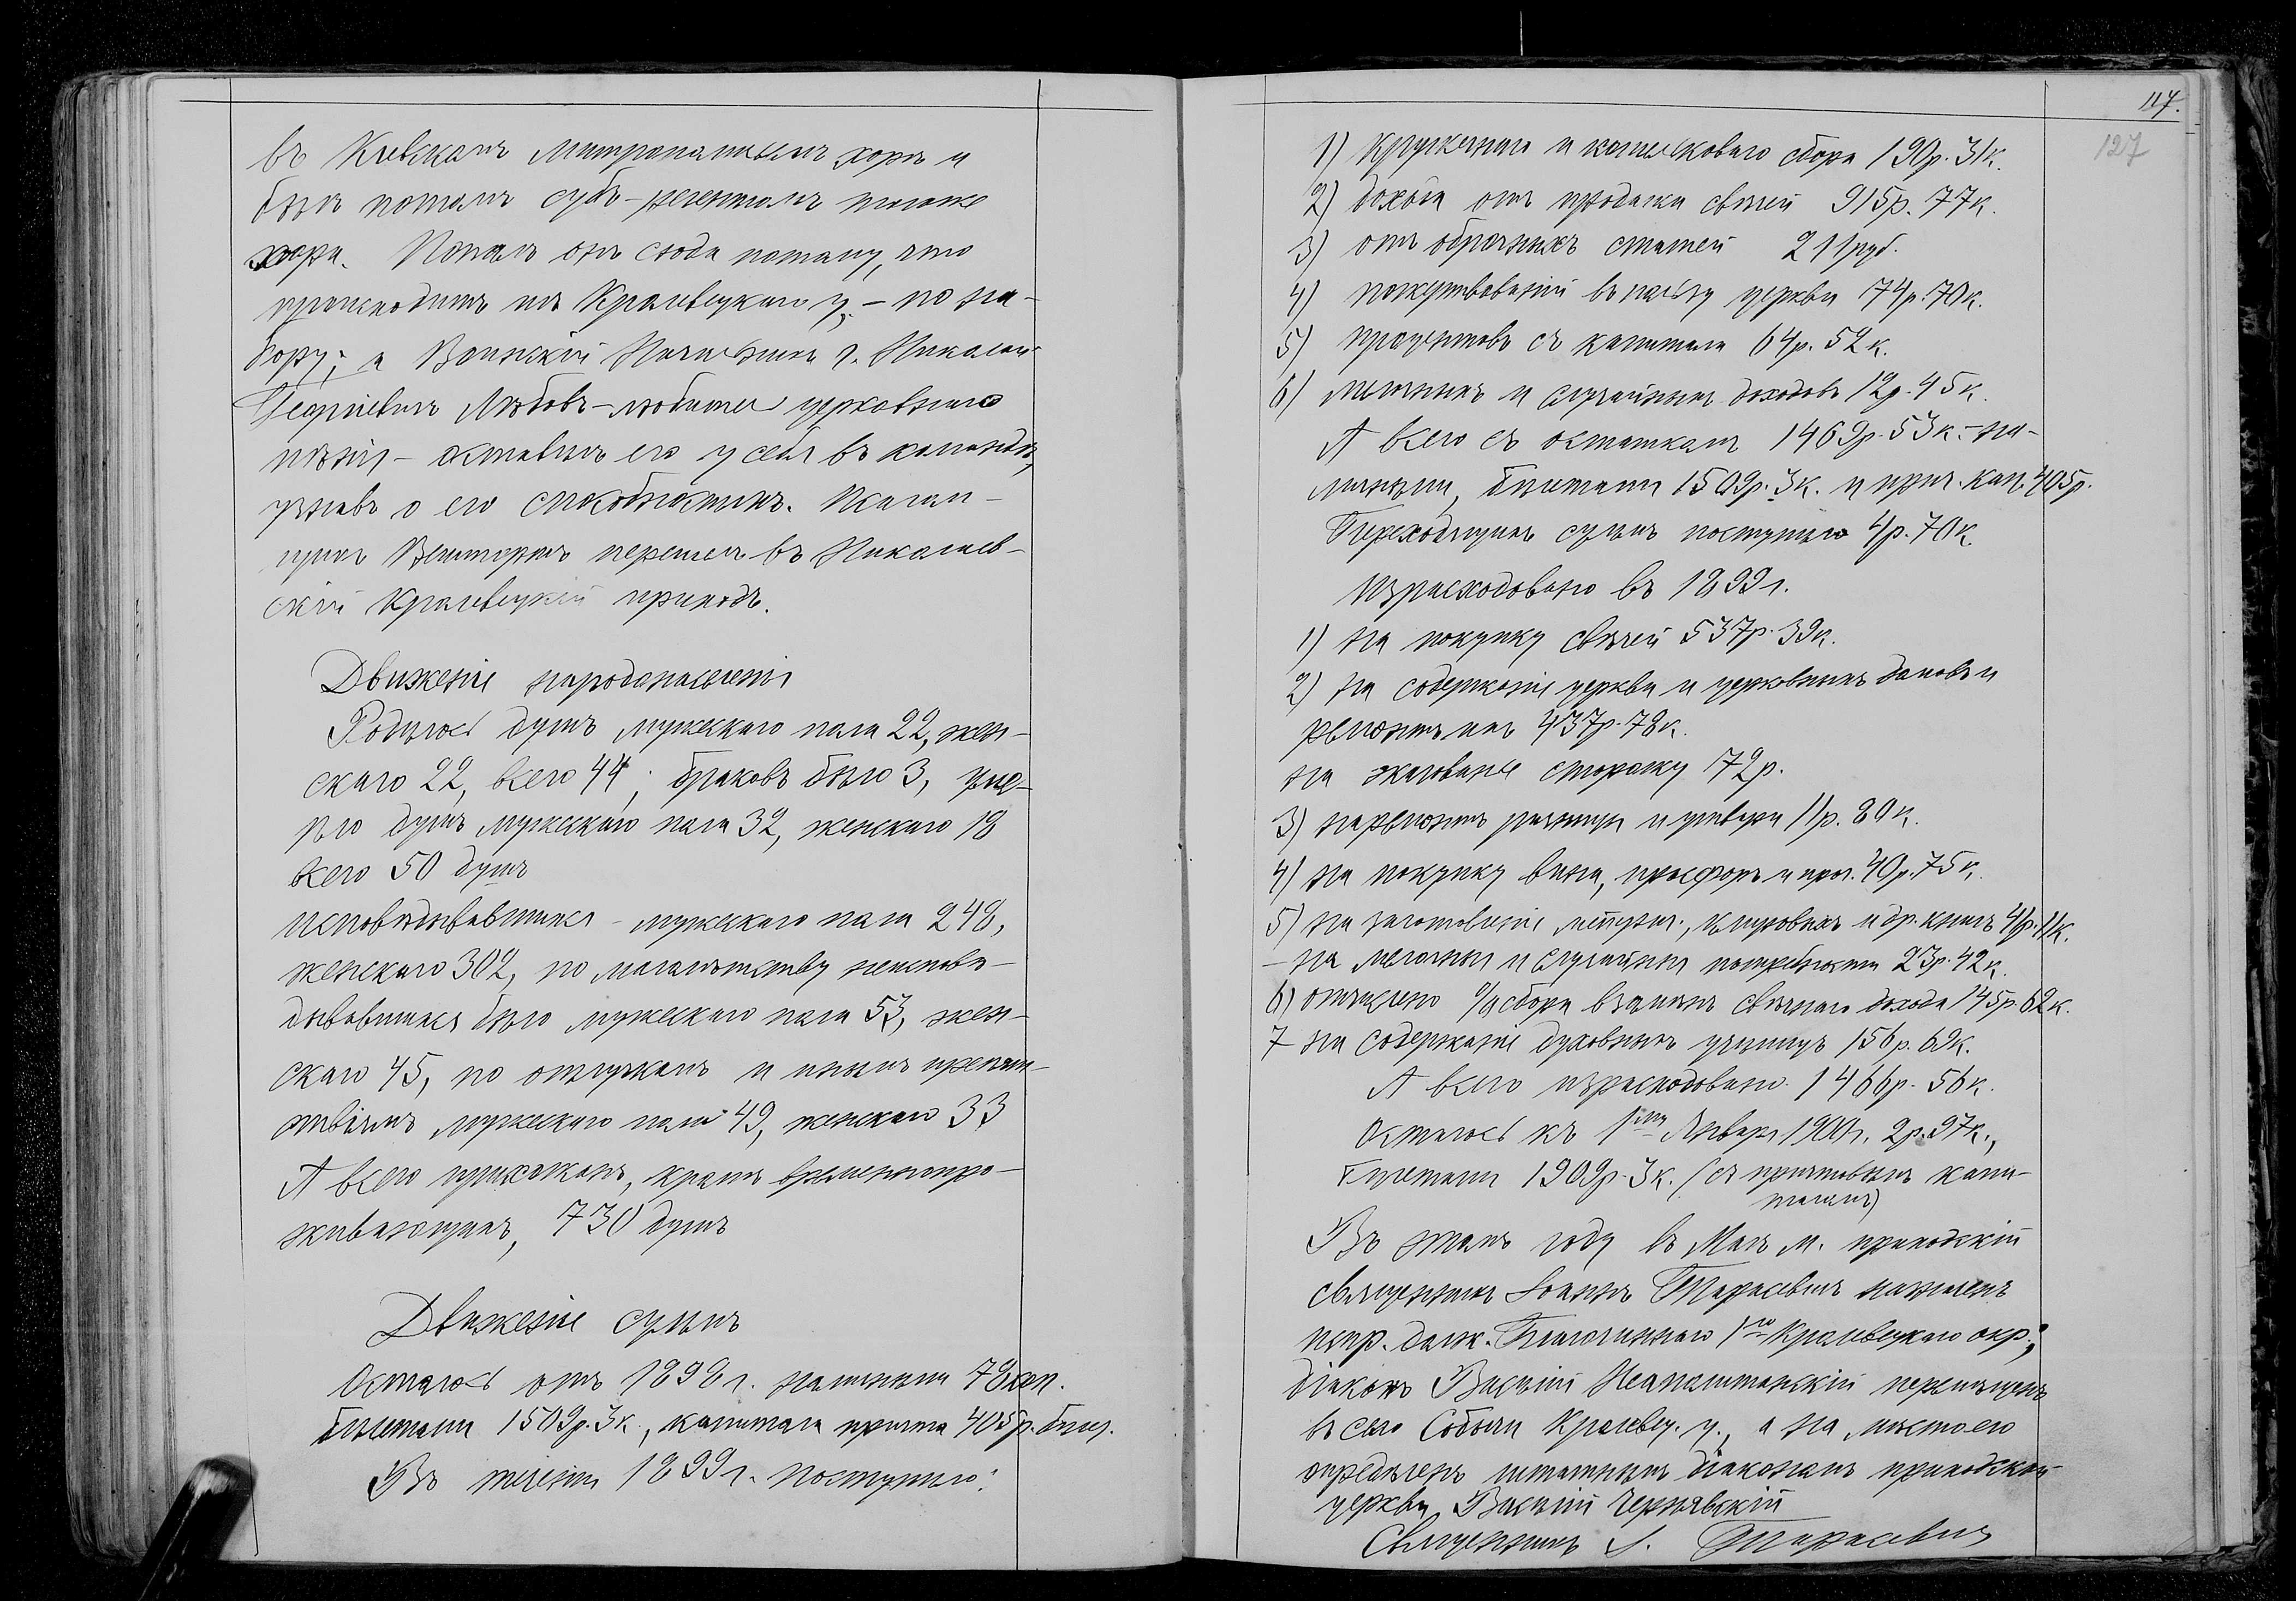 въ Кіевскомъ Митрополитскомъ хорѣ и
былъ потомъ субъ-регентомъ того же
хора. Попалъ онъ сюда потому, что
происходитъ изъ Кролевецкаго у. – по на-
бору; а Воинскій Начальникъ г. Николай
Георгіевичъ Любовъ – любитель церковнаго
пѣнія – оставилъ его у себя въ командѣ,
узнавъ о его способностяхъ. Псалом-
щикъ перешелъ въ Николаев-
скій Кролевецкій приходъ.
Движеніе народонаселенія
Родилось душъ мужескаго пола 22, жен-
скаго 22, всего 44; браковъ было 3, уме-
рло душъ мужескаго пола 32, женскаго 18
всего 50 душъ
Исповѣдывавшихся – мужескаго пола 248,
женскаго 302, по малолѣтству неисповѣ-
дывавшихся было мужескаго пола 53, жен-
скаго 45, по отлучкамъ и инымъ препят-
ствіямъ мужескаго пола 49, женскаго 33
А всего прихожанъ, кромѣ временнопро-
живающихъ, 730 душъ
Движеніе суммъ
Осталось отъ 1898 г. наличными 78 коп.
билетами 1509 р. 3 к., капитала причта 405 р. бил.
Въ теченіи 1899 г. поступило:
117.
127
1) Кружечнаго и кошельковаго сбора 190 р. 31 к.
2) дохода отъ продажи свѣчей 915 р. 77 к.
3) отъ оброчныхъ статей 211 руб.
4) пожертвованій въ пользу церкви 74 р. 70 к.
5) процентовъ съ капитала 64 р. 52 к.
6) мелочныхъ и случайныхъ доходовъ 12 р. 45 к.
А всего съ остаткомъ 1469 р. 53 к. на-
личными, билетами 1509 р. 3 к. и прич. кап. 405 р.
Переходящихъ суммъ поступило 4 р. 70 к.
Израсходовано въ 1899 г.
1) на покупку свѣчей 537 р. 39 к.
2) на содержаніе церкви и церковныхъ домовъ и
ремонтъ ихъ 437 р. 78 к.
на жалованье сторожу 72 р.
3) на ремонтъ ризницы и утвари 11 р. 80 к.
4) на покупку вина, просфоръ и проч. 40 р. 75 к.
5) на заготовленіе метрич., клировыхъ и др. книгъ 41 р. 11 к.
– на мелочныя и случайныя потребности 23 р. 42 к.
6) отчислено % сбора взамѣнъ свѣчнаго дохода 145 р. 62 к.
7 на содержаніе духовныхъ училищъ 156 р. 69 к.
А всего израсходовано 1466 р. 56 к.
Осталось къ 1му Января 1900 г. 2 р. 97 к.,
Билетами 1909 р. 3 к. (съ причтовымъ капи-
таломъ)
Въ этомъ году въ Маѣ м. приходскій
священникъ Іоаннъ Тарасевичъ назначенъ
испр. долж. Благочиннаго 1го Кролевецкаго окр.;
діаконъ Василій Неаполитанскій перемѣщенъ
въ село Собычи Кролевец. у., а на мѣсто его
опредѣленъ штатнымъ діакономъ приходской
церкви Василій Чернявскій
Священникъ І. Тарасевичъ